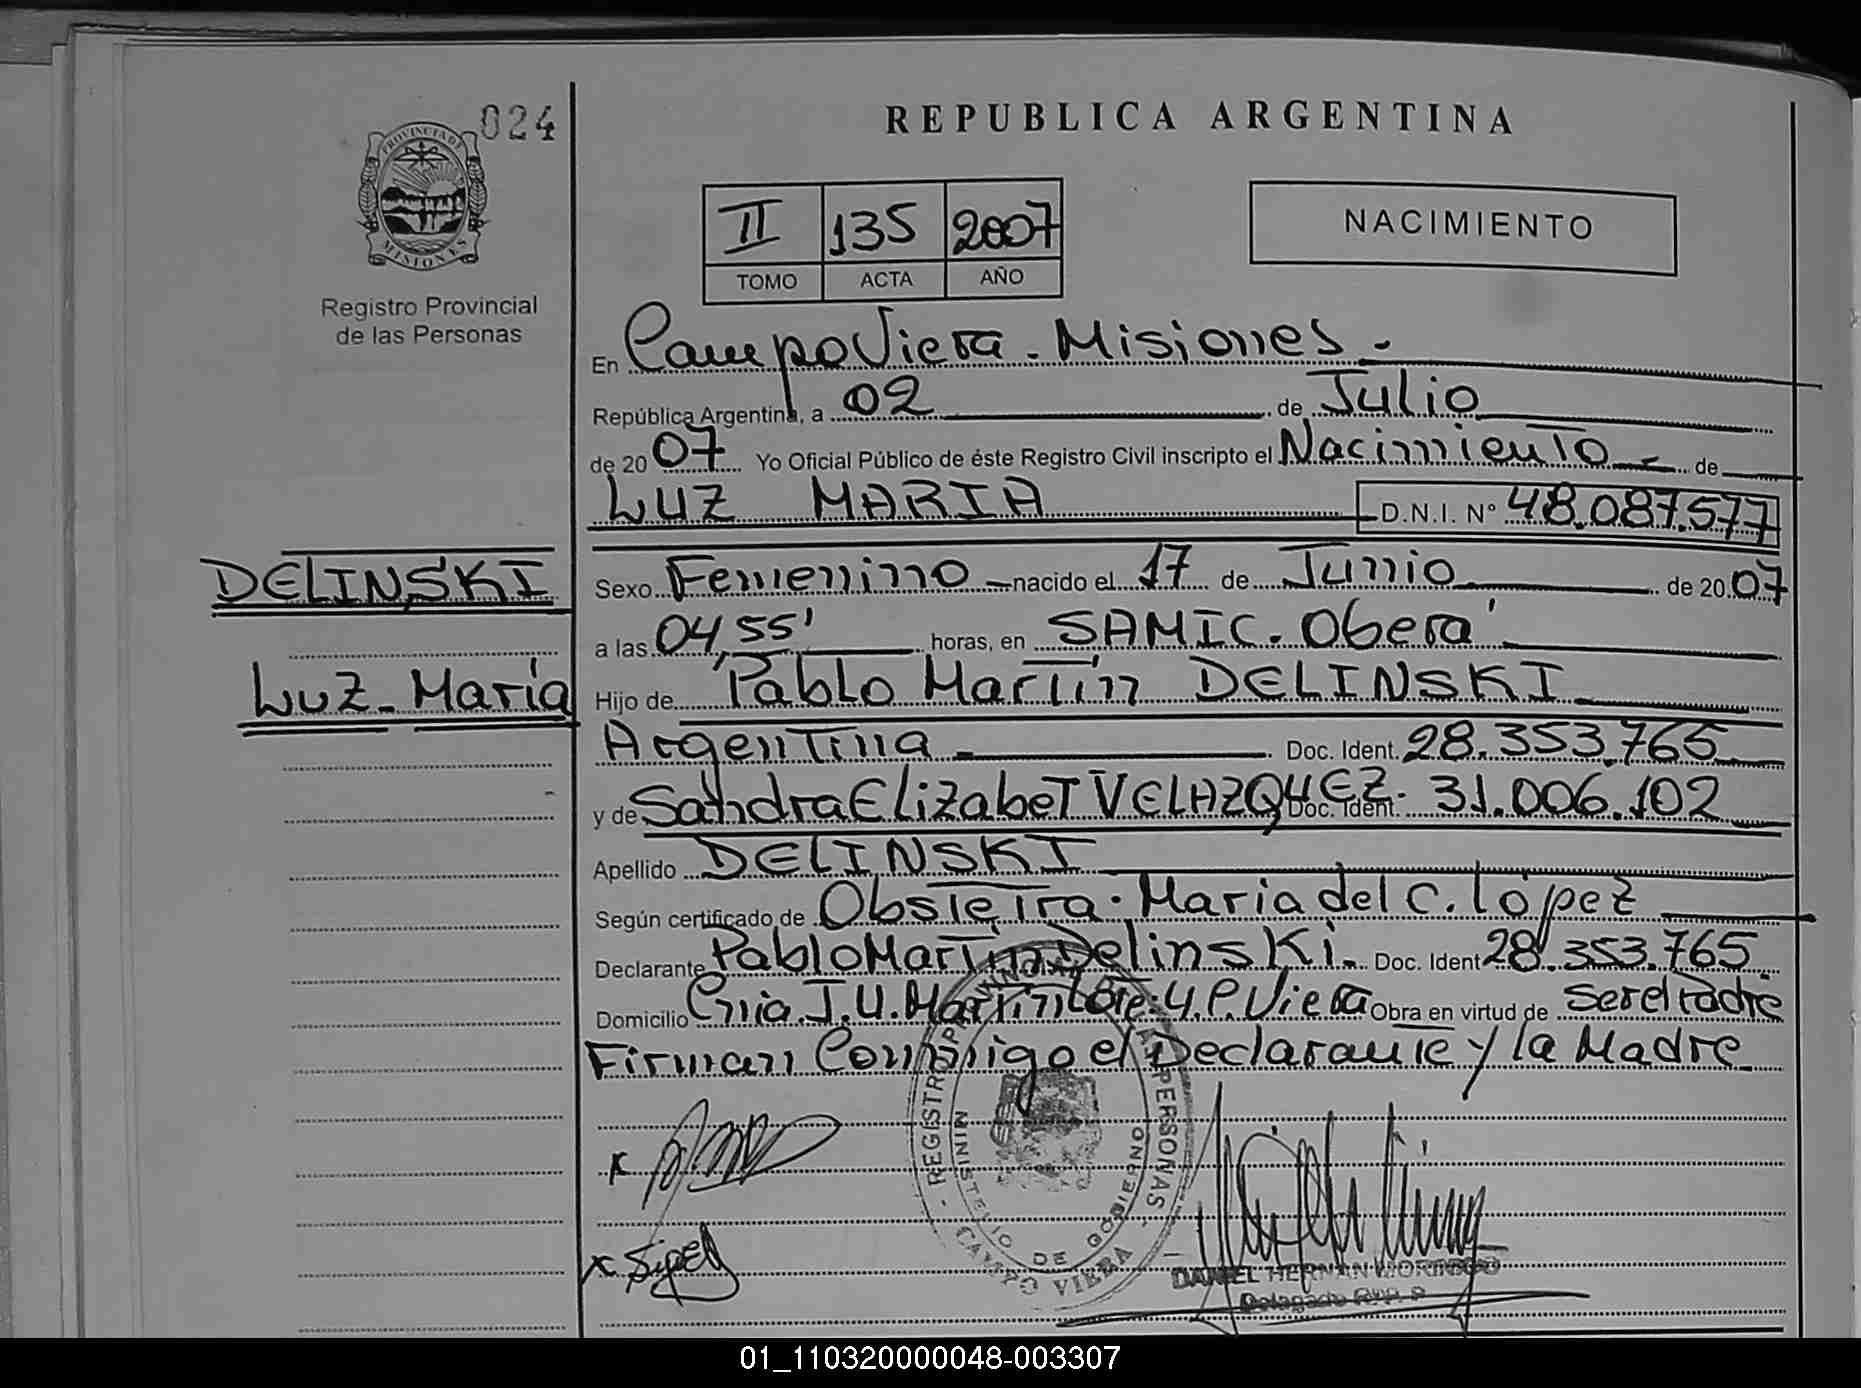 024
PROVINCIA DE
MISIONES
Registro Provincial
de las Personas
REPUBLICA ARGENTINA
II 135 2007
TOMO ACTA AÑO
NACIMIENTO
En Campo Viera - Misiones -
República Argentina, a 02 de Julio
de 2007 Yo Oficial Público de éste Registro Civil inscripto el Nacimiento - de
LUZ MARIA D.N.I. N° 48.087.577
DELINSKI
Sexo Femenino nacido el 17 de Junio de 20 07
a las 04,55' horas, en SAMIC. Oberá
Luz - María
Hijo de Pablo Martín DELINSKI
Argentina - Doc. Ident. 28.353.765
y de Sandra Elizabet VELAZQUEZ. Doc. Ident. 31.006.102
Apellido DELINSKI
Según certificado de Obstetra. Maria del C. López
Declarante Pablo Martín Delinski. Doc. Ident 28.353.765
Domicilio Cnia. J.U. Martín Lote: 4. C. Viera Obra en virtud de ser el Padre
Firman Conmigo el Declarante y la Madre
x
x
REGISTRO PROVINCIAL DE LAS PERSONAS
MINISTERIO DE GOBIERNO
CAMPO VIERA
DANIEL HERNAN
Delegado R.P.P.
01_110320000048-003307